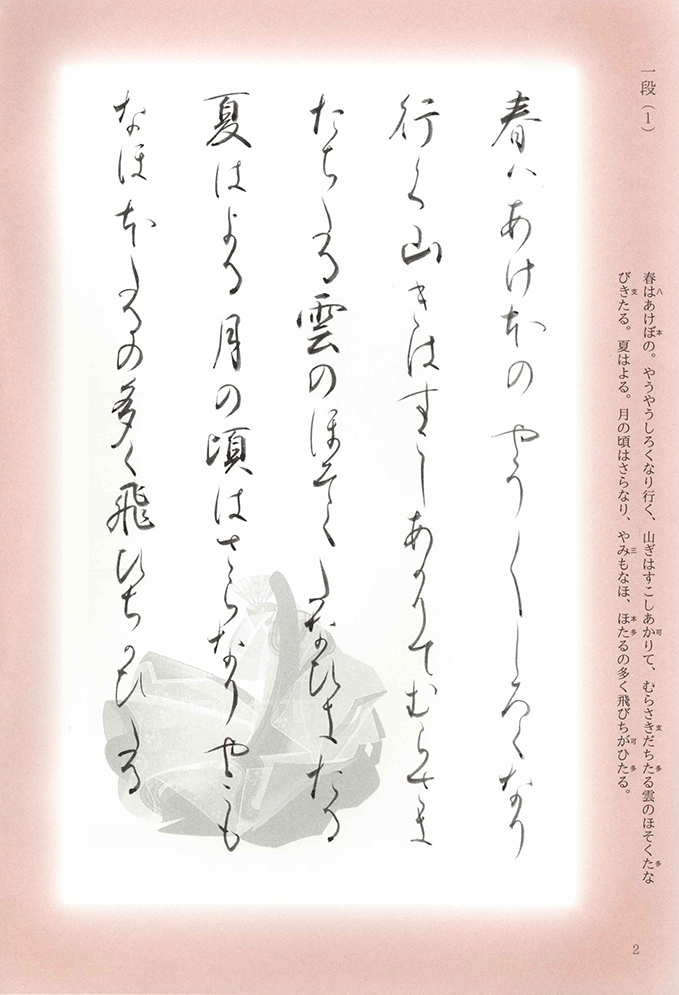 一段(1)
春はあけぼの。やうやうしろくなり行く、山ぎはすこしあかりて、むらさきだちたる雲のほそくたな
八
本
可
支
多
多
びきたる。夏はよる。月の頃はさらなり、やみもなほ、ほたるの多く飛びちがひたる。
支
三
本多
可
多
春八あけ本のやう〳〵しろくなり
行く山きはすこしあ可りてむらさ支
たち多る雲のほそく多なひ支たる
夏はよる月の頃はさらなりや三も
なほ本多るの多く飛ひち可ひ多る
2